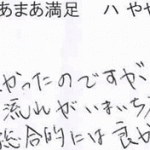 あまあ満足 ハ やや
かったのですが
流れがいまいち
総合的には良か